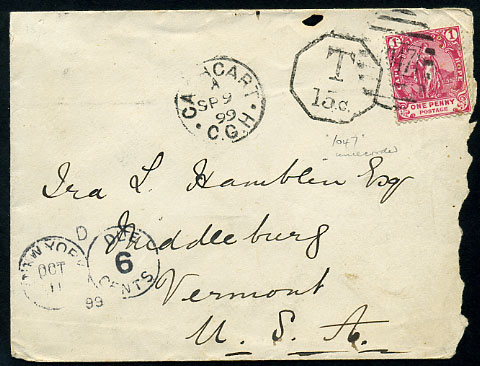 CATHCART
A
SP 9
99
C.G.H.
T
15c.
1 1
ONE PENNY
POSTAGE
'1047'
Ira L. Hamblin Esq
Middleburg
Vermont
U. S. A.
NEW YORK
D
OCT
11
99
DUE
6
CENTS